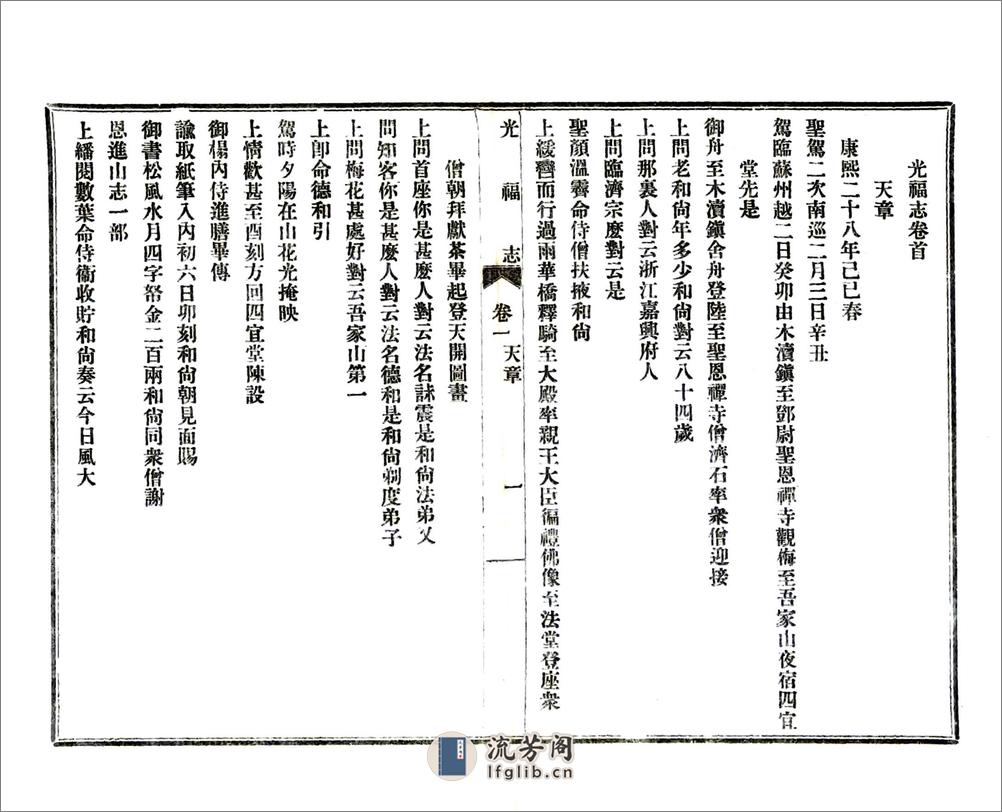 光福志卷首
天章
康熙二十八年己巳春
聖駕二次南巡二月三日辛丑
駕臨蘇州越二日癸卯由木瀆鎮至鄧尉聖恩禪寺觀梅至吾家山夜宿四宜
堂先是
御舟至木瀆鎮舍舟登陸至聖恩禪寺僧濟石率衆僧迎接
上問老和尙年多少和尙對云八十四歲
上問那裏人對云浙江嘉興府人
上問臨濟宗麼對云是
聖顏溫霽命侍僧扶掖和尙
上緩轡而行過雨華橋釋騎至大殿率親王大臣徧禮佛像至法堂登座衆
光福志
卷一 天章
一
僧朝拜獻茶畢起登天開圖畫
上問首座你是甚麼人對云法名詠震是和尙法弟又
問知客你是甚麼人對云法名德和是和尙剃度弟子
上問梅花甚處好對云吾家山第一
上卽命德和引
駕時夕陽在山花光掩映
上情歡甚至酉刻方回四宜堂陳設
御榻內侍進膳畢傳
諭取紙筆入內初六日卯刻和尙朝見面賜
御書松風水月四字帑金二百兩和尙同衆僧謝
恩進山志一部
上繙閱數葉命侍衞收貯和尙奏云今日風大
流芳阁
lfglib.cn